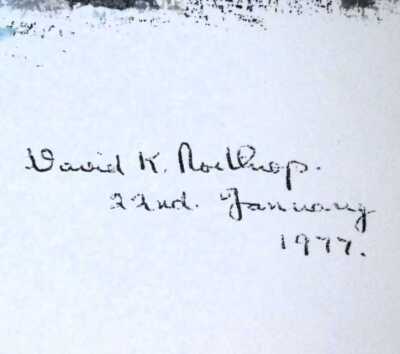 David K. Northrop.
22nd. January
1977.